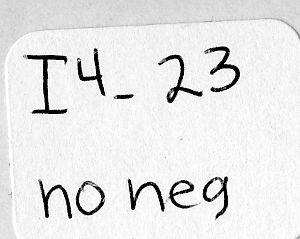 I4-23
no neg